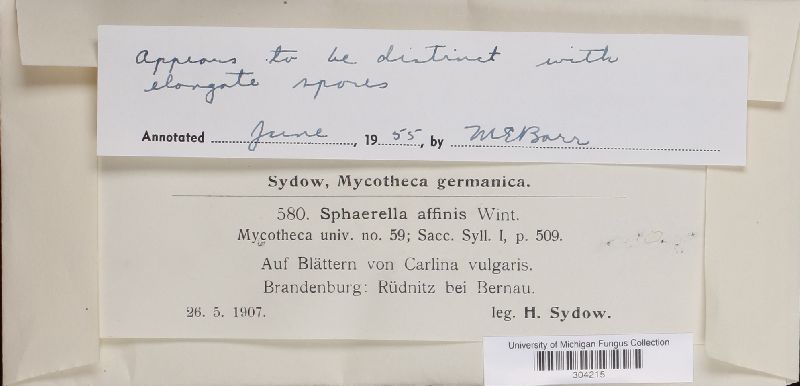 Appears to be distinct with
elongate spores
Annotated June, 1955, by MEBarr
Sydow, Mycotheca germanica.
580. Sphaerella affinis Wint.
Mycotheca univ. no. 59; Sacc. Syll. I, p. 509.
Auf Blättern von Carlina vulgaris.
Brandenburg: Rüdnitz bei Bernau.
26. 5. 1907. leg. H. Sydow.
University of Michigan Fungus Collection
304215